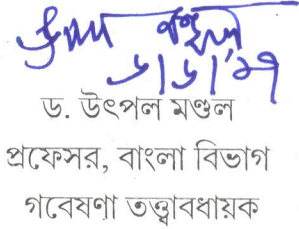 উৎপল মণ্ডল
ড. উৎপল মণ্ডল
প্রফেসর, বাংলা বিভাগ
গবেষণা তত্ত্বাবধায়ক